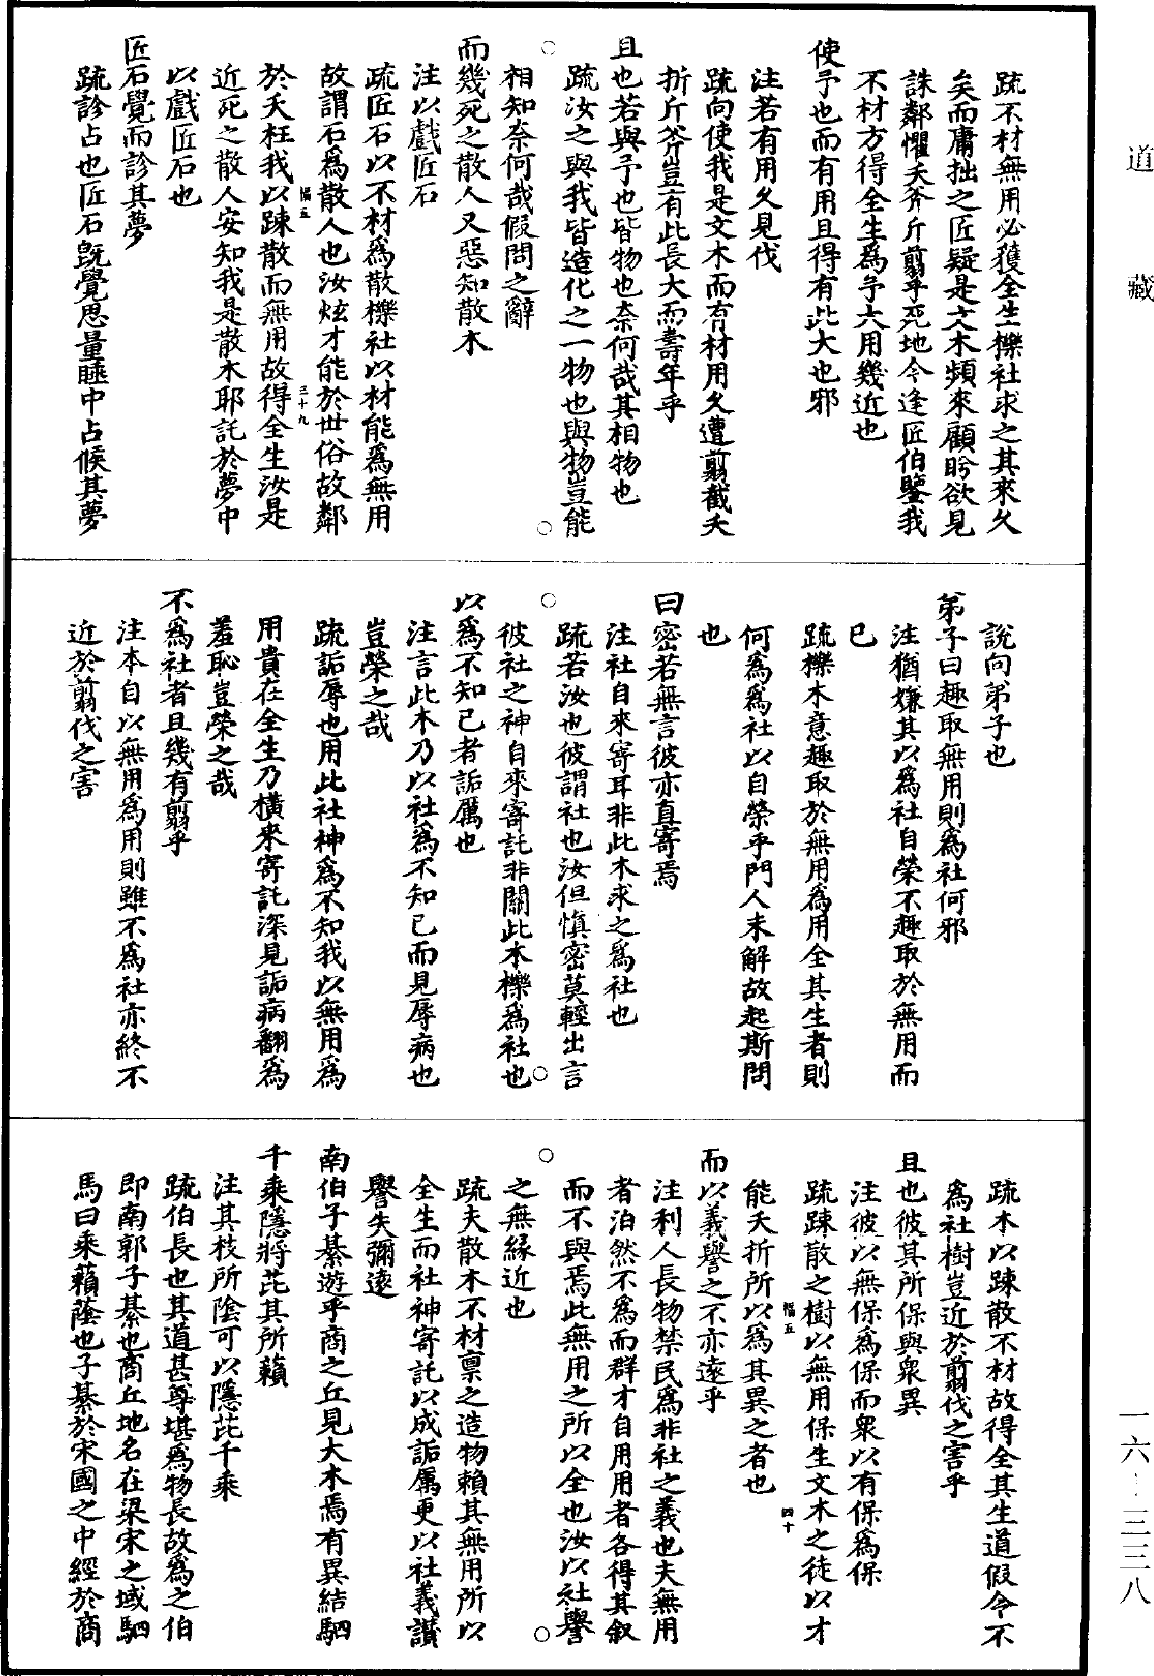 道藏
疏不材無用必獲全生櫟社求之其來久
矣而庸拙之匠疑是文木頻來顧眄欲見
誅鄰懼夭斧斤翦乎死地今逢匠伯鑒我
不材方得全生為予大用幾近也
使予也而有用且得有此大也邪
注若有用久見伐
疏向使我是文木而有材用久遭翦截夭
折斤斧豈有此長大而壽年乎
且也若與予也皆物也奈何哉其相物也
疏汝之與我皆造化之一物也與物豈能
相知奈何哉假問之辭
而幾死之散人又惡知散木
注以戲匠石
疏匠石以不材為散櫟社以材能為無用
故謂石為散人也汝炫才能於世俗故鄰
於夭枉我以踈散而無用故得全生汝是
近死之散人安知我是散木耶託於夢中
以戲匠石也
匠石覺而診其夢
疏診占也匠石既覺思量睡中占候其夢
說向弟子也
弟子曰趣取無用則為社何邪
注猶嫌其以為社自榮不趣取於無用而
已
疏櫟木意趣取於無用為用全其生者則
何為為社以自榮乎門人未解故起斯問
也
曰密若無言彼亦直寄焉
注社自來寄耳非此木求之為社也
疏若汝也彼謂社也汝但慎密莫輕出言
彼社之神自來寄託非關此木櫟為社也
以為不知已者詬厲也
注言此木乃以社為不知已而見辱病也
豈榮之哉
疏詬辱也用此社神為不知我以無用為
用貴在全生乃橫來寄託深見詬病翻為
羞恥豈榮之哉
不為社者且幾有翦乎
注本自以無用為用則雖不為社亦終不
近於翦伐之害
疏木以踈散不材故得全其生道假令不
為社樹豈近於翦伐之害乎
且也彼其所保與衆異
注彼以無保為保而衆以有保為保
疏踈散之樹以無用保生文木之徒以才
能夭折所以為其異之者也
而以義譽之不亦遠乎
注利人長物禁民為非社之義也夫無用
者泊然不為而群才自用用者各得其叙
而不與焉此無用之所以全也汝以社譽
之無緣近也
疏夫散木不材禀之造物賴其無用所以
全生而社神寄託以成詬厲更以社義讃
譽失彌遠
南伯子綦遊乎商之丘見大木焉有異結駟
千乘隱將芘其所藾
注其枝所陰可以隱芘千乘
疏伯長也其道甚尊堪為物長故為之伯
即南郭子綦也商丘地名在梁宋之域駟
馬曰乘藾蔭也子綦於宋國之中經於商
福五
三十九
福五
四十
一六-三三八